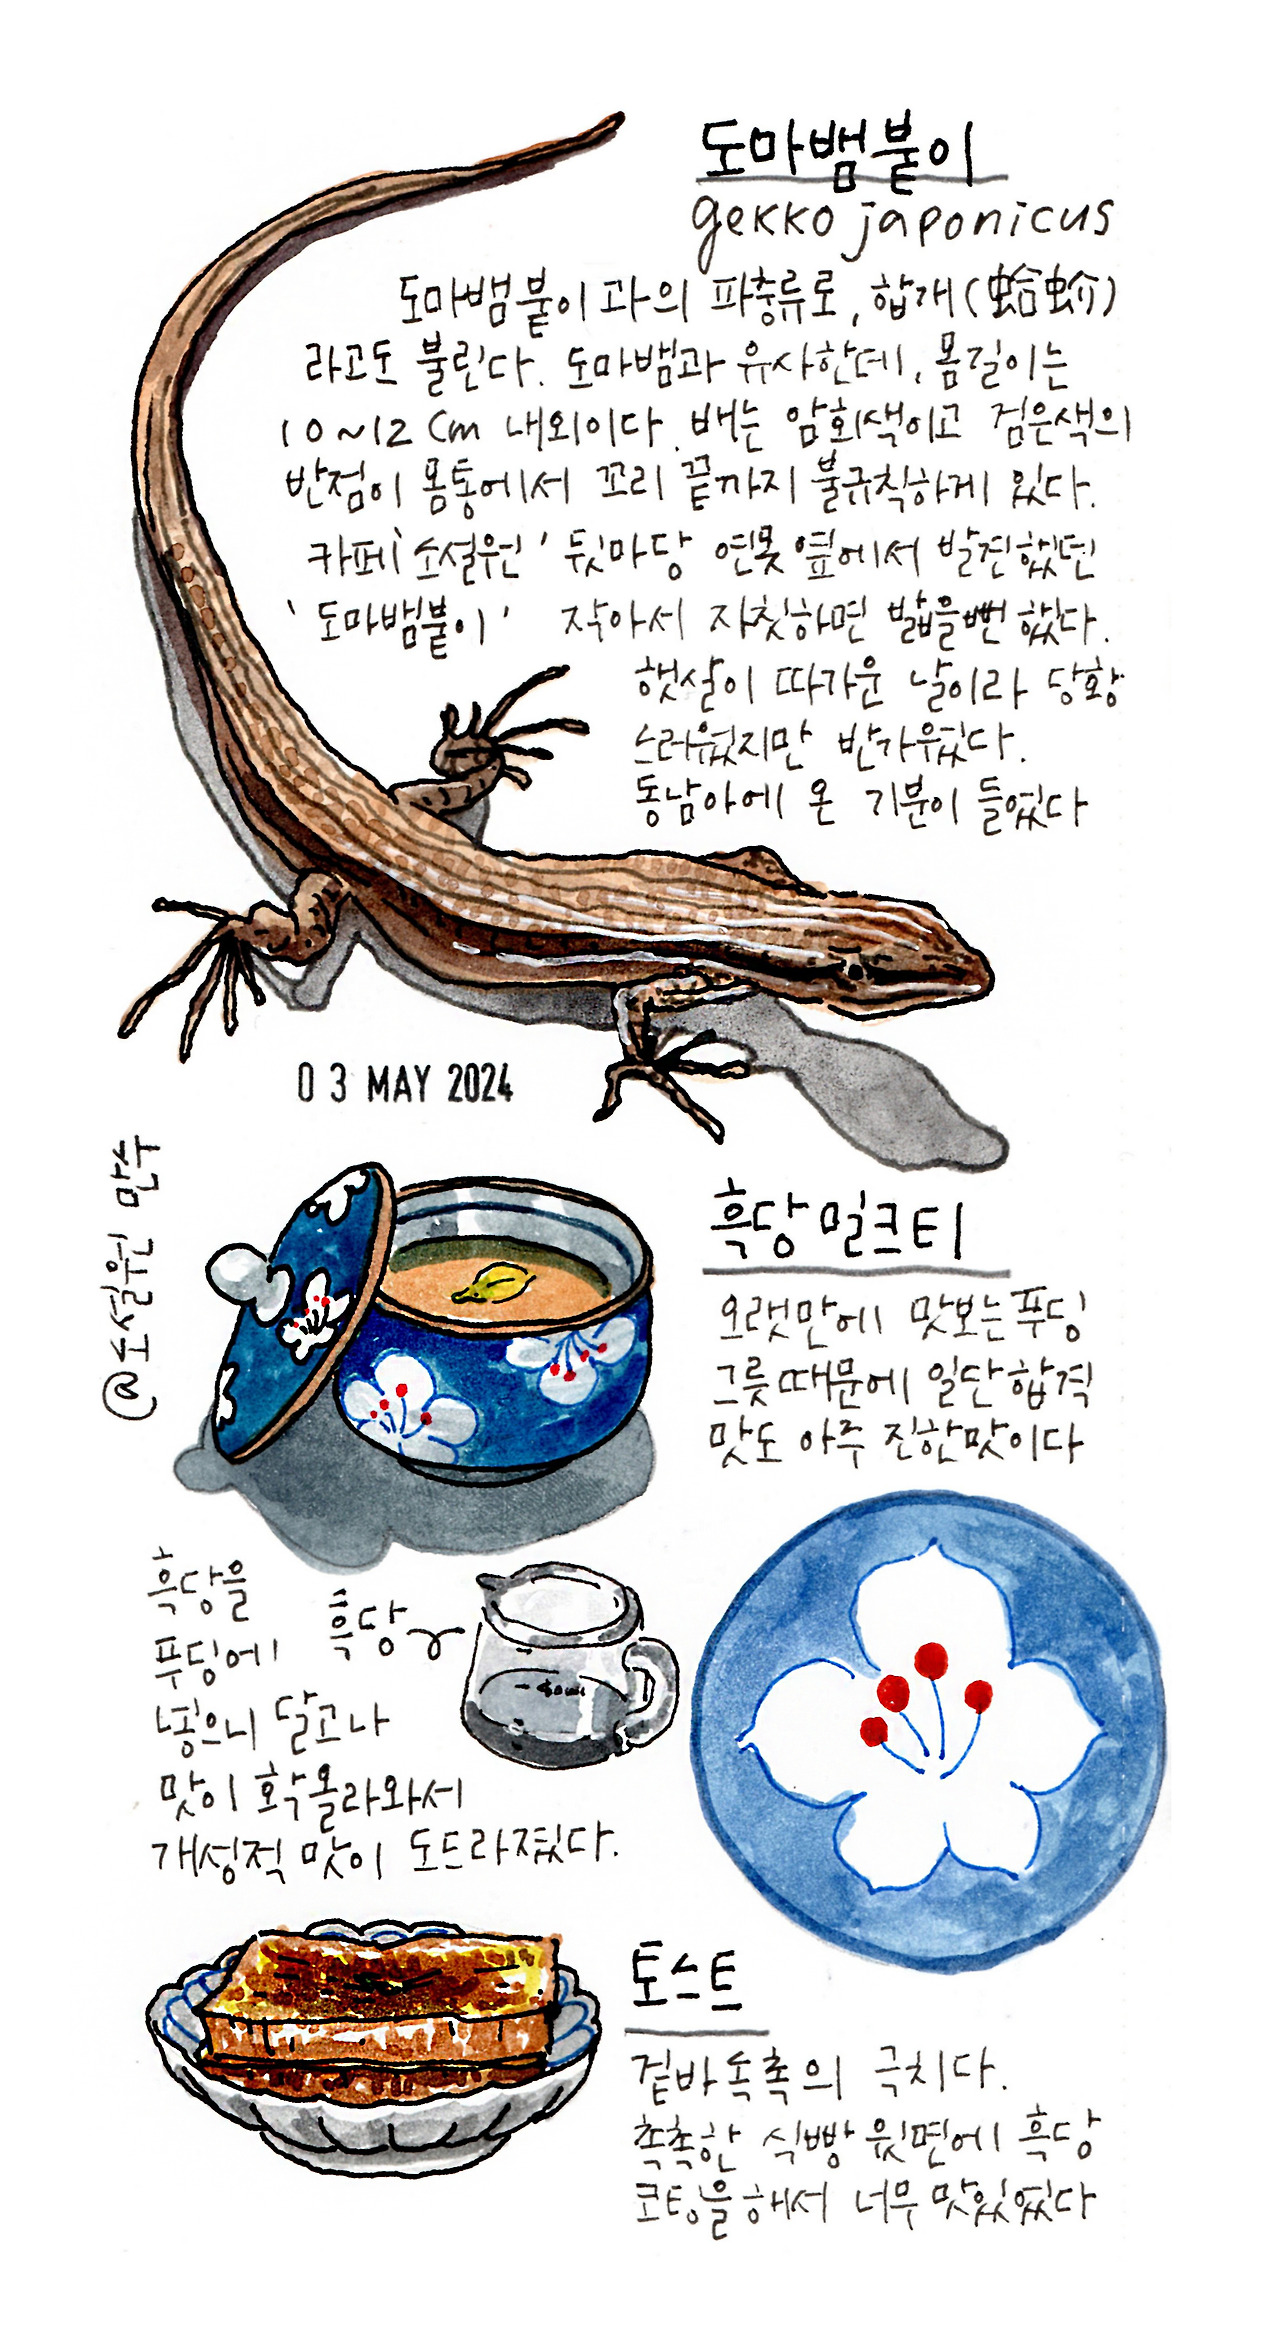 도마뱀붙이
gekko japonicus
도마뱀붙이과의 파충류로, 합개(蛤蚧)
라고도 불린다. 도마뱀과 유사한데, 몸길이는
10~12cm 내외이다. 배는 암회색이고 검은색의
반점이 몸통에서 꼬리 끝까지 불규칙하게 있다.
카페 '소설원' 뒷마당 연못 옆에서 발견했던
'도마뱀붙이' 작아서 자칫하면 밟을뻔 했다.
햇살이 따가운 날이라 당황
스러웠지만 반가웠다.
동남아에 온 기분이 들었다
03 MAY 2024
@소설원 만수
흑당밀크티
오랫만에 맛보는 푸딩
그릇때문에 일단합격
맛도 아주 진한맛이다
흑당을
푸딩에
넣으니 달고나
맛이 확올라와서
개성적 맛이 도드라졌다.
흑당
토스트
겉바속촉의 극치다.
촉촉한 식빵 윗면에 흑당
코팅을해서 너무 맛있었다